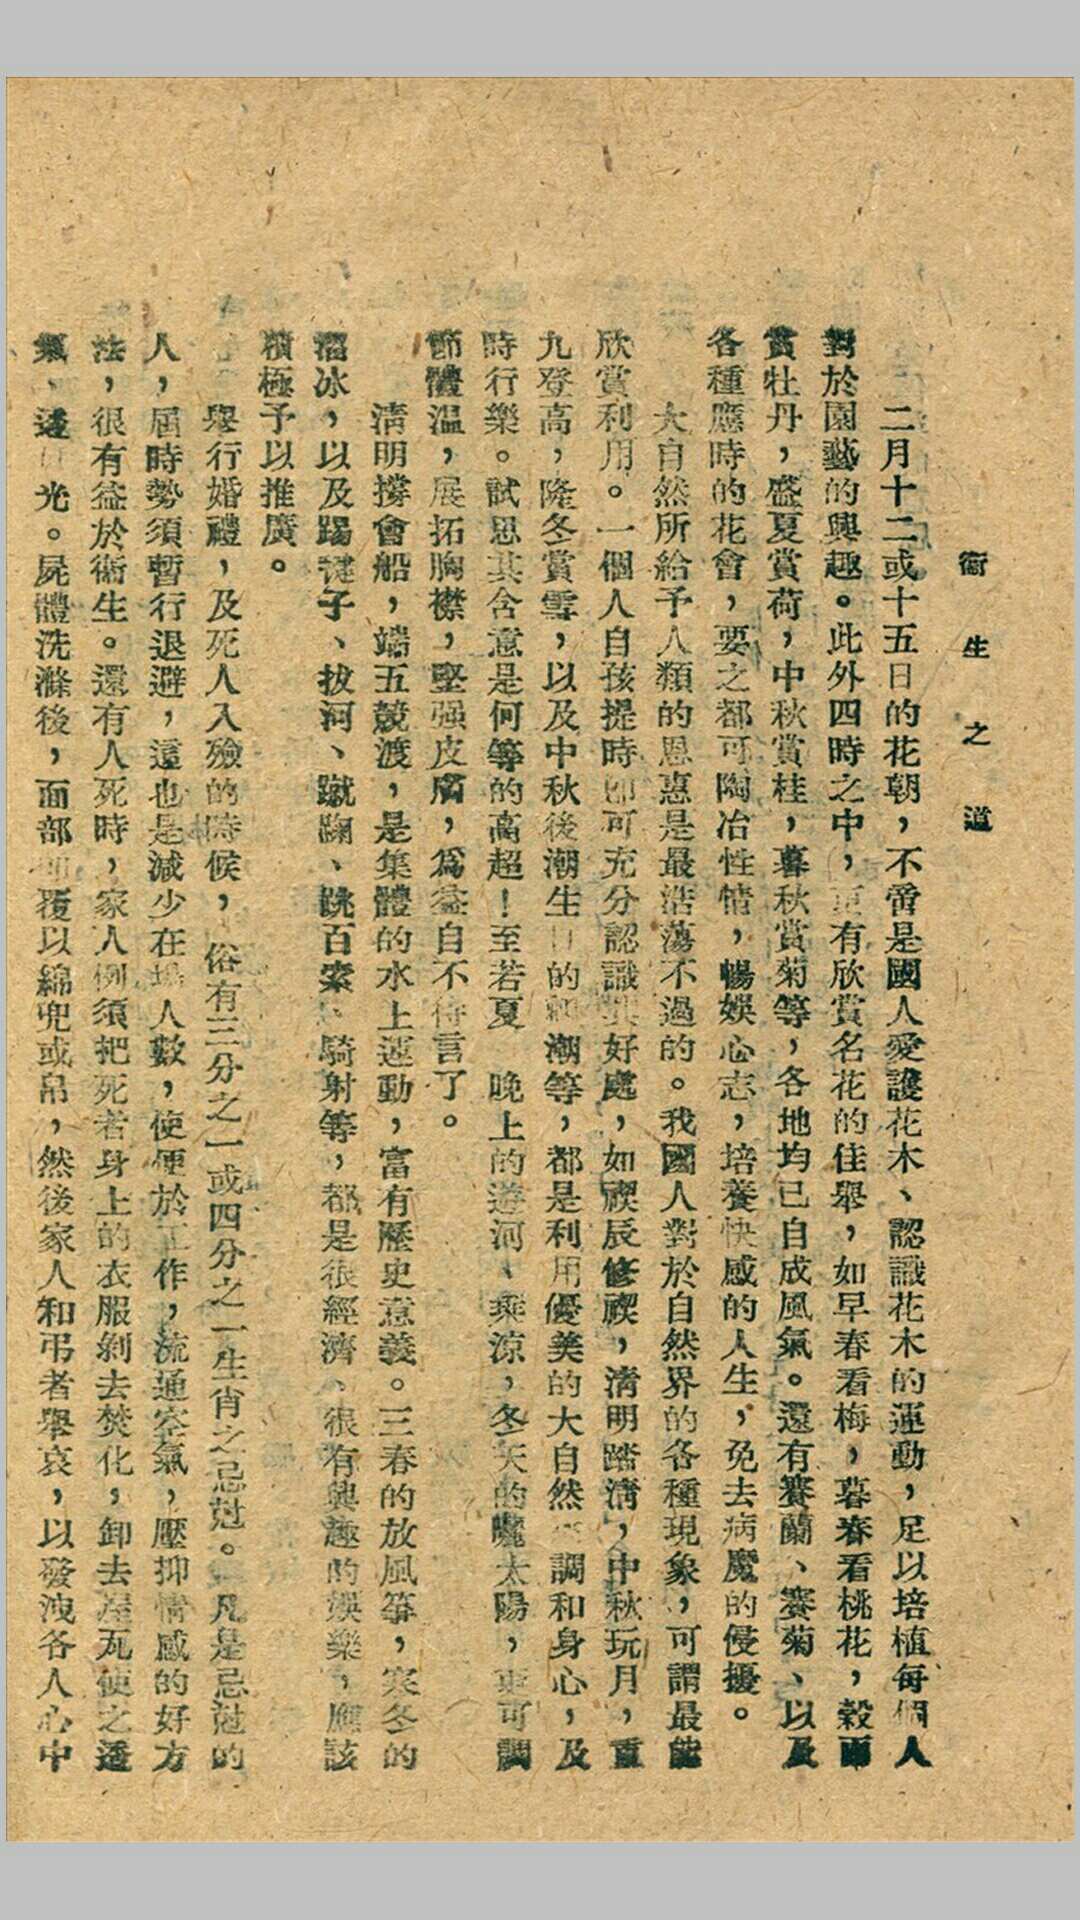 衞生之道
二月十二或十五日的花朝，不啻是國人愛護花木、認識花木的運動，足以培植每個人
對於園藝的興趣。此外四時之中，更有欣賞名花的佳舉，如早春看梅，暮春看桃花，穀雨
賞牡丹，盛夏賞荷，中秋賞桂，暮秋賞菊等，各地均已自成風氣。還有賽蘭、賽菊、以及
各種應時的花會，要之都可陶冶性情，暢娛心志，培養快感的人生，免去病魔的侵擾。
大自然所給予人類的恩惠是最浩蕩不過的。我國人對於自然界的各種現象，可謂最能
欣賞利用。一個人自孩提時卽可充分認識其好處，如禊辰修禊，淸明踏淸，中秋玩月，重
九登高，隆冬賞雪，以及中秋後潮生日的觀潮等，都是利用優美的大自然 調和身心，及
時行樂。試思其含意是何等的高超！至若夏 晚上的遊河、乘涼，冬天的曬太陽，更可調
節體溫，展拓胸襟，堅强皮膚，爲益自不待言了。
淸明撐會船，端五競渡，是集體的水上運動，富有歷史意義。三春的放風箏，寒冬的
溜冰，以及踢毽子、拔河、蹴踘、跳百索、騎射等，都是很經濟、很有興趣的娛樂，應該
積極予以推廣。
舉行婚禮，及死人入殮的時候，俗有三分之一或四分之一生肖之忌尅。凡是忌尅的
人，屆時勢須暫行退避，這也是減少在場人數，使便於工作，流通空氣，壓抑情感的好方
法，很有益於衞生。還有人死時，家人例須把死者身上的衣服剝去焚化，卸去屋瓦使之透
氣、透日光。屍體洗滌後，面部卽覆以綿兜或帛，然後家人和弔者舉哀，以發洩各人心中